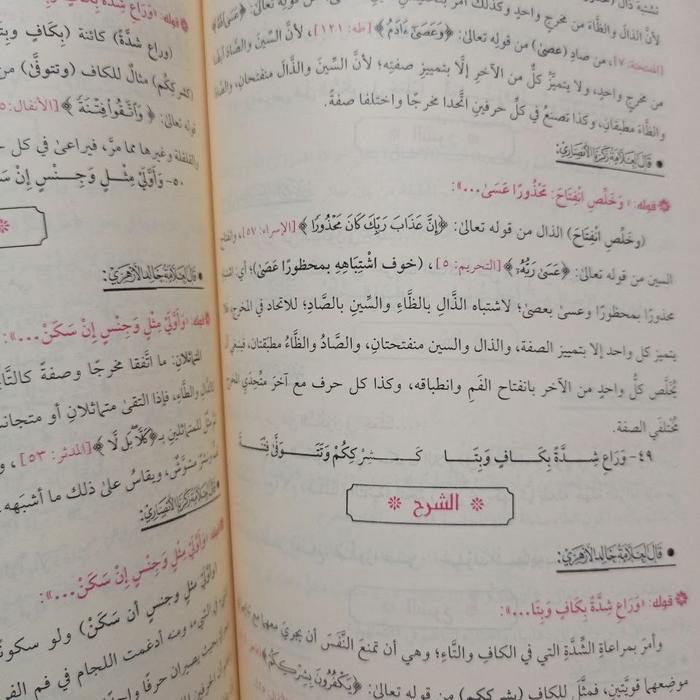 لأنَّ الذال والظَّاء من مخرج واحدٍ وكذلك
[الممتحنة: ٧]، من صادِ (عصى) من قوله تعالى: ﴿وَعَصَىٰٓ ءَادَمُ﴾ [طه: ١٢١]، لأنَّ السينَ والصَّادَ أيضًا
من مخرجٍ واحدٍ، ولا يتميزُ كلٌّ من الآخرِ إلَّا بتمييزِ صفتِه؛ لأنَّ السِّينَ والذَّالَ منفتحانِ، والصَّادَ
والظَّاءَ مطبقانِ، وكذا تصنعُ في كلِّ حرفينِ اتَّحدا مخرجًا واختلفا صفةً.
• قال العلامة زكريا الأنصاري:
قوله: «وَخَلِّصِ انْفِتَاحَ: مَحْذُورًا عَسَىٰ...»:
(وخَلِّصِ انْفِتَاحَ) الذال من قوله تعالىٰ: ﴿إِنَّ عَذَابَ رَبِّكَ كَانَ مَحْذُورًا﴾ [الإسراء: ٥٧]، وانفتاح
السين من قوله تعالىٰ: ﴿عَسَىٰ رَبُّهُۥٓ﴾ [التحريم: ٥]، (خوف اشْتِبَاهِهِ بمحظورًا عَصَىٰ)؛ أي: اشتباه
محذورًا بمحظورًا وعسىٰ بعصىٰ؛ لاشتباه الذَّالِ بالظَّاءِ والسِّينِ بالصَّادِ؛ للاتحاد في المخرج، فلا
يتميز كل واحد إلا بتمييز الصفة، والذال والسين منفتحتانِ، والصَّادُ والظَّاءُ مطبَقتان، فينبغي أن
يُخَلَّص كلُّ واحدٍ من الآخر بانفتاح الفَمِ وانطباقه، وكذا كل حرف مع آخرَ متَّحِدَيِ المخرج
مُختَلَفَي الصفة.
٤٩- وَرَاعِ شِدَّةً بِكَافٍ وَبِتَا كَشِرْكِكُمْ وَتَتَوَفَّىٰ فِتْنَةَ
الشرح
• قال العلامة خالد الأزهري:
قوله: «وَرَاعِ شِدَّةً بِكَافٍ وَبِتَا...»:
وأمرَ بمراعاةِ الشِّدَّةِ التي في الكافِ والتَّاءِ؛ وهي أن تمنعَ النَّفَسَ أن يجريَ معها مع
موضِعِها قويَّتينِ، فمثَّلَ للكاف (بشرككم) من قوله تعالى: ﴿يَكْفُرُونَ بِشِرْكِكُمْ﴾
قوله: «وَرَاعِ شِدَّةً بِكَافٍ
(وراع شدَّةً) كائنة (بِكَافٍ وَبِتَا
مثالٌ للكاف (وتتوفَّىٰ) من
قوله تعالىٰ: ﴿وَٱتَّقُوا۟ فِتْنَةً﴾ [الأنفال:
والقلقلة وغيرها مما مرَّ، فيراعىٰ في كل
٥٠- وَأَوَّلَيْ مِثْلٍ وَجِنْسٍ إِنْ
• قال العلامة خالد الأزهري:
قوله: «وَأَوَّلَيْ مِثْلٍ وَجِنْسٍ إِنْ سَكَنْ...»:
المتماثلان: ما اتَّفقا مخرجًا وصفةً
والطَّاءِ، فإذا التقىٰ متماثلانِ أو
للمتماثلينِ بـ﴿كَلَّا بَل لَّا﴾ [المدثر: ٥٣]،
ويقاسُ علىٰ ذلك ما أشبَهه.
• قال العلامة زكريا الأنصاري:
قوله: «وَأَوَّلَيْ مِثْلٍ وَجِنْسٍ إِنْ سَكَنْ...»:
(وأوَّلَيْ مثلٍ وجنسٍ أن سَكَنْ) ولو
ومنه أدغمت اللجام في فم
يصيران حرفًا